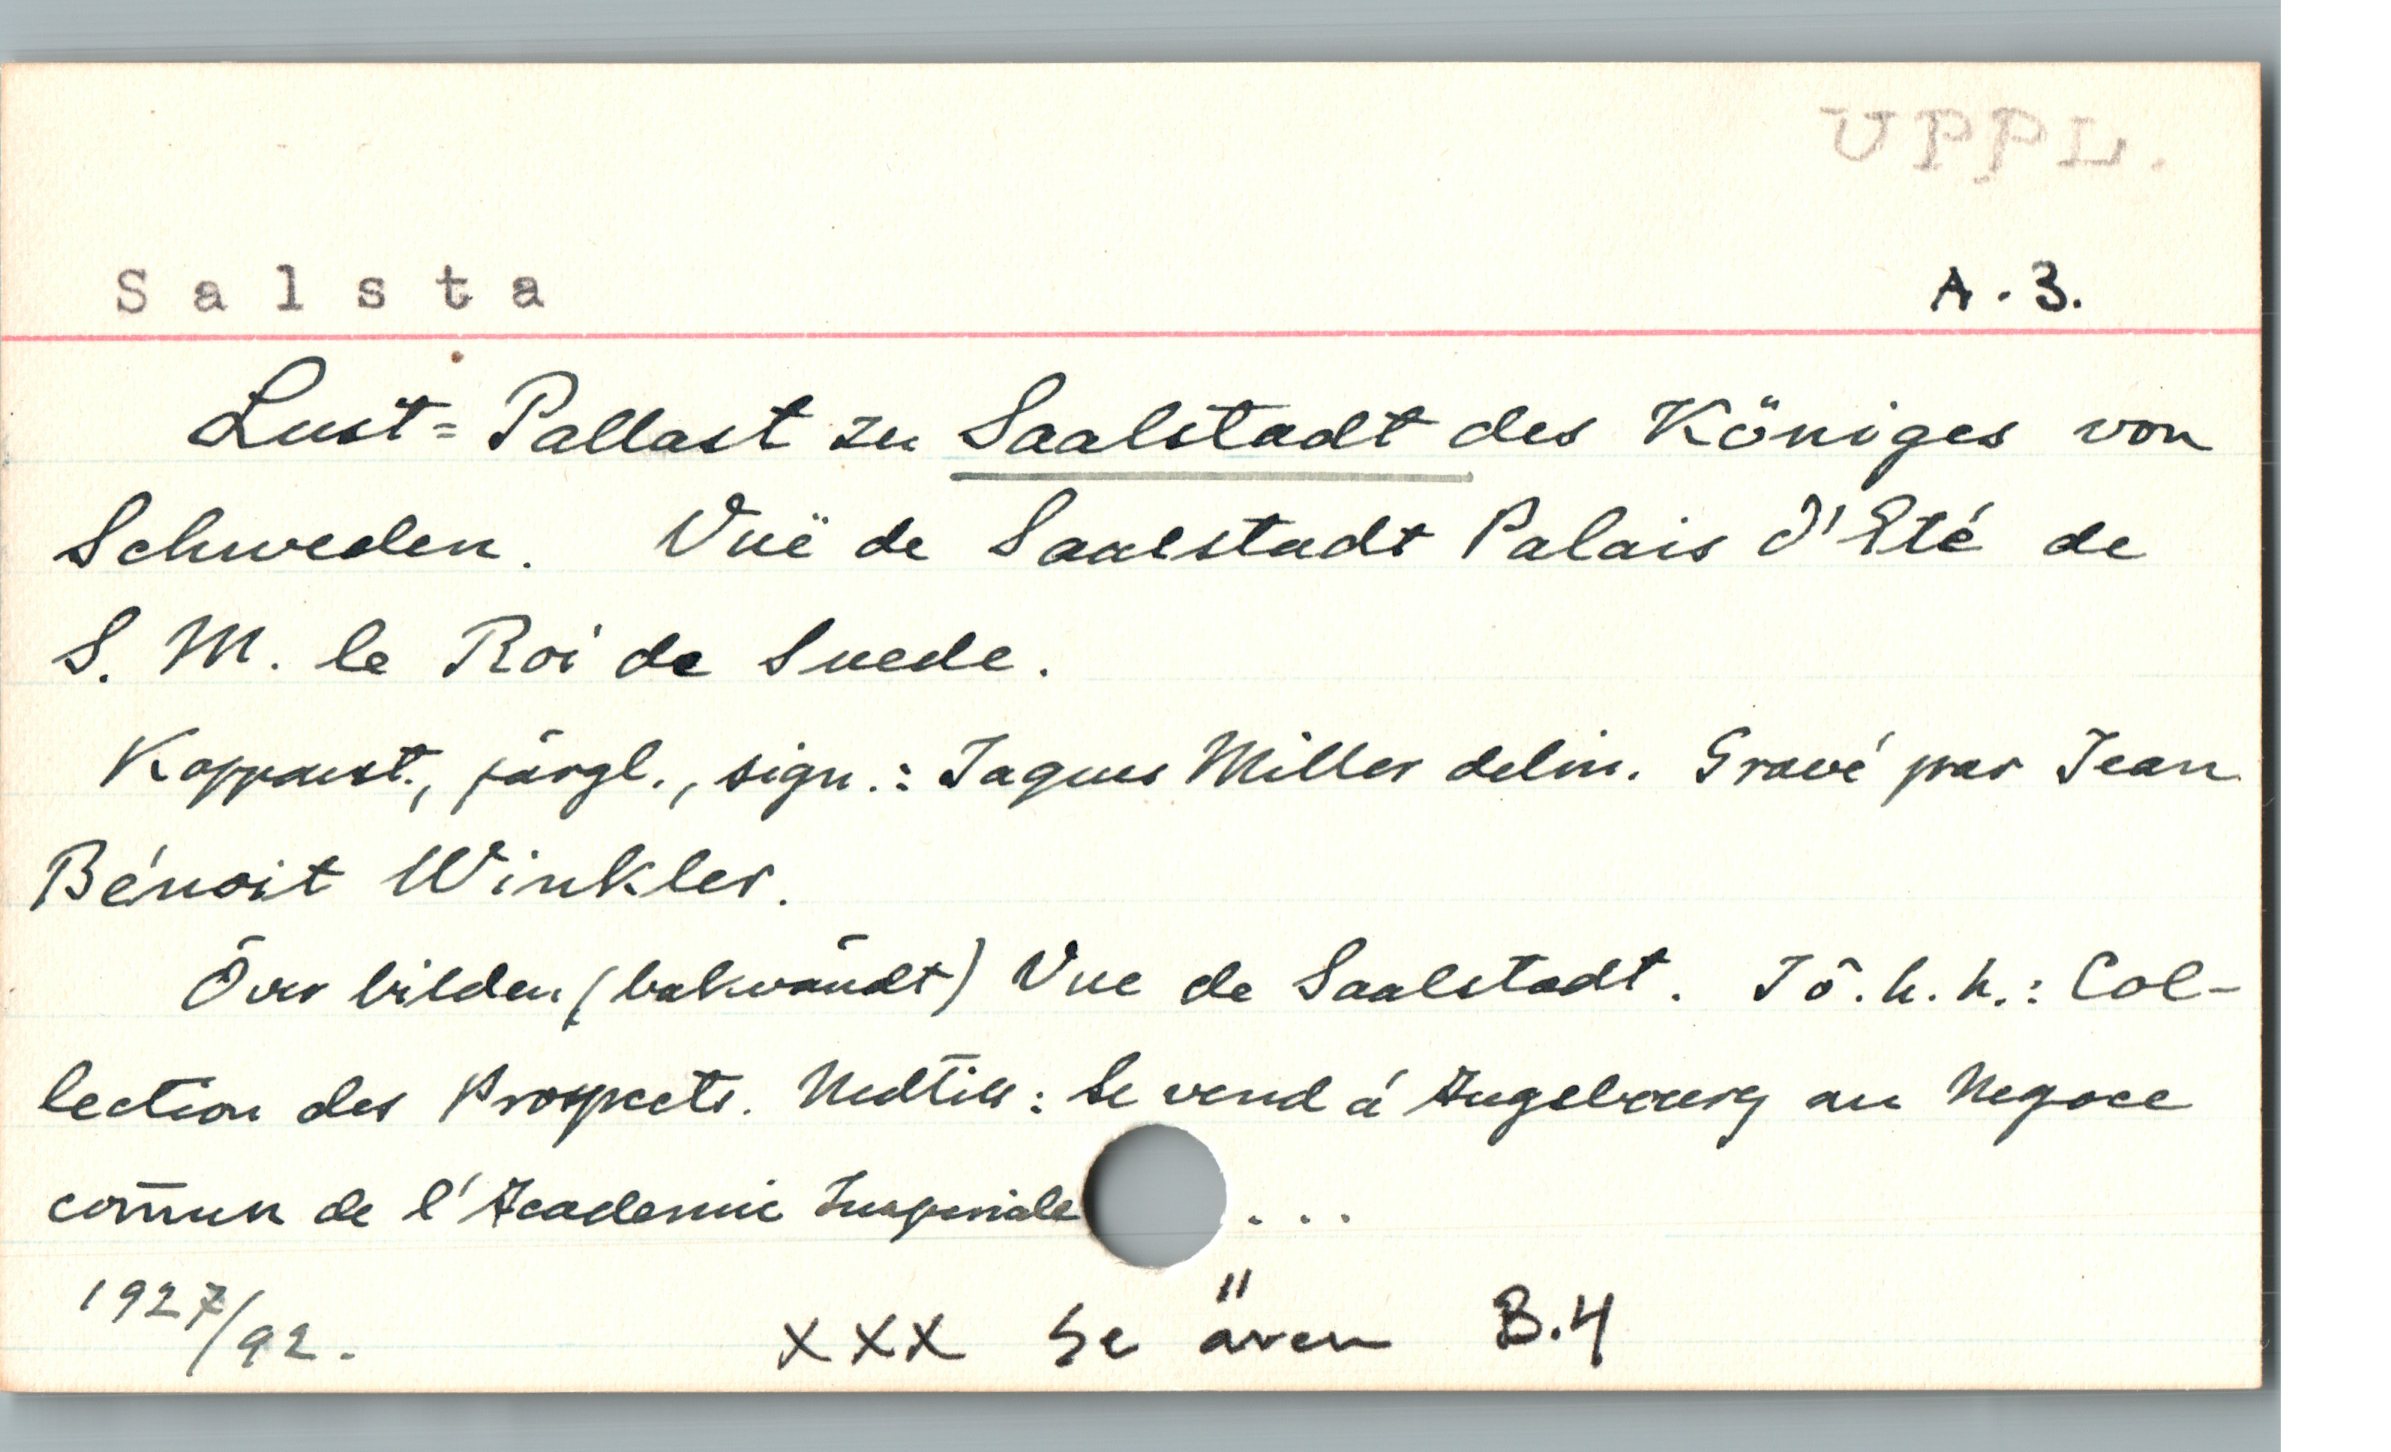 UPPL.
Salsta A.3.
Lust= Pallast zu Saalstadt des Königes von
Schweden. Vuë de Saalstadt Palais d'Eté de
S. M. le Roi de Suede.
Kopparst., färgl., sign.: Jaques Miller delin. Gravé par Jean
Bénoit Winkler.
Över bilden (bakvändt) Vue de Saalstadt. I ö.h.h.: Col-
lection des Prospects. Nedtill: Se vend á Augsbourg au Negoce
com̄un de l'Academie Imperiale ...
1927/92.
XXX Se även B.4